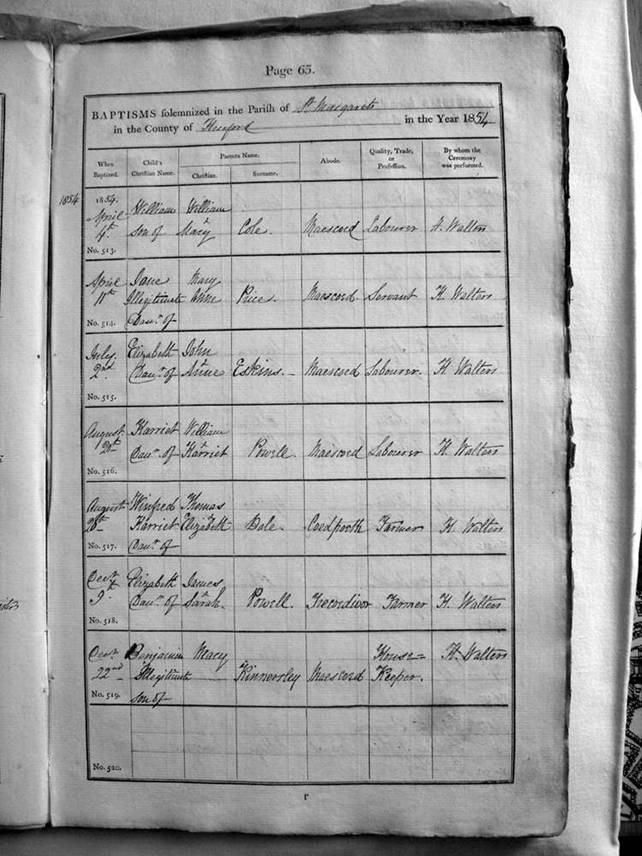 Page 65.
BAPTISMS solemnized in the Parish of St. Margarets
in the County of Hereford in the Year 1854
When Baptized. Child's Christian Name. Parents Name. Christian. Surname. Abode. Quality, Trade, or Profession. By whom the Ceremony was performed.
1854
1854. William William
April 4th son of & Mary Cole. Maescoed Labourer H. Walters
No. 513.
April Jane Mary
11th Illegitimate Anne Price. Maescoed. Servant H. Walters
No. 514. Daur. of
July Elizabeth John
2nd Daur. of & Anne Eskins. Maescoed Labourer. H. Walters
No. 515.
August Harriet William
20th Daur. of & Harriet Powell. Maescoed Labourer H. Walters
No. 516.
August Winifred Thomas
28th Harriet & Elizabeth Dale. Farmer H. Walters
No. 517. Daur. of
Elizabeth James
9th Daur. of & Sarah. Powell. Farmer H. Walters
No. 518.
Benjamin Mary House= H. Walters
22nd Illegitimate Kinnersley Maescoed Keeper.
No. 519. son of
No. 520.